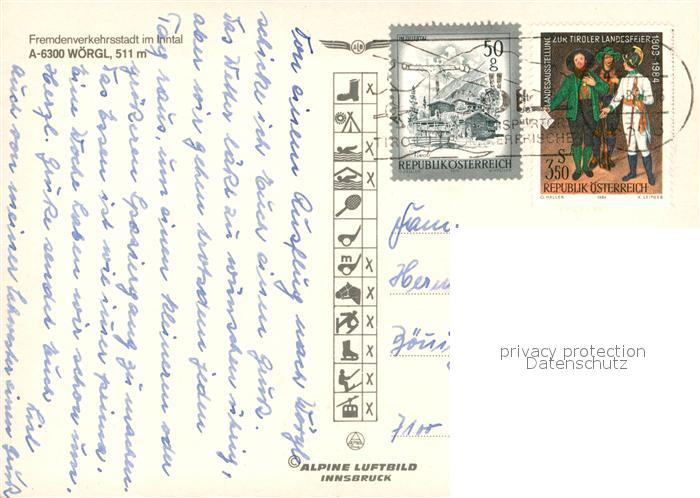 Fremdenverkehrsstadt im Inntal
A-6300 WÖRGL, 511 m
Von einem Ausflug nach Wörgl
schicke ich Euch einen Gruß.
Das Wetter läßt zu wünschen übrig,
aber wir gehen trotzdem jeden
Tag raus, um einen kleineren oder
größeren Spaziergang zu machen.
Das Essen ist wie immer prima.
Eine Woche haben wir schon rum.
Herzl. Grüße sendet Euch
auch von meiner einen Gruß
IM ZILLERTAL
50 g
REPUBLIK ÖSTERREICH
LANDESAUSSTELLUNG ZUR TIROLER LANDESFEIER 1809-1984
S 3.50
REPUBLIK ÖSTERREICH
O. ZEILLER 1984 K. LEITGEB
Fam.
7100
m
© ALPINE LUFTBILD
INNSBRUCK
privacy protection
Datenschutz